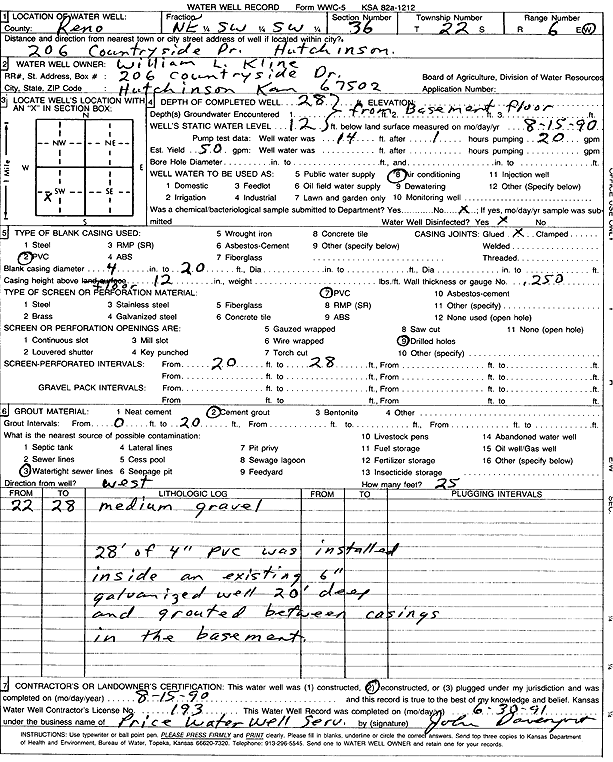 WATER WELL RECORD Form WWC-5 KSA 82a-1212
1 LOCATION OF WATER WELL: Fraction Section Number Township Number Range Number
County: Reno NE ¼ SW ¼ SW ¼ 36 T 22 S R 6 E(W)
Distance and direction from nearest town or city street address of well if located within city?
206 Countryside Dr. Hutchinson.
2 WATER WELL OWNER: William L. Kline
RR#, St. Address, Box # : 206 Countryside Dr. Board of Agriculture, Division of Water Resources
City, State, ZIP Code : Hutchinson Kan 67502 Application Number:
3 LOCATE WELL'S LOCATION WITH AN "X" IN SECTION BOX:
N
NW NE
W E
SW SE
X
S
1 Mile
4 DEPTH OF COMPLETED WELL 28 ft. ELEVATION:
Depth(s) Groundwater Encountered 1 ft. 2 ft. 3 ft.
from Basement floor
WELL'S STATIC WATER LEVEL 12 ft. below land surface measured on mo/day/yr 8-15-90
Pump test data: Well water was 14 ft. after 1 hours pumping 20 gpm
Est. Yield 50 gpm: Well water was ft. after hours pumping gpm
Bore Hole Diameter in. to ft., and in. to ft.
WELL WATER TO BE USED AS: 5 Public water supply 8 Air conditioning 11 Injection well
1 Domestic 3 Feedlot 6 Oil field water supply 9 Dewatering 12 Other (Specify below)
2 Irrigation 4 Industrial 7 Lawn and garden only 10 Monitoring well
Was a chemical/bacteriological sample submitted to Department? Yes No X; If yes, mo/day/yr sample was sub-
mitted Water Well Disinfected? Yes X No
5 TYPE OF BLANK CASING USED: 5 Wrought iron 8 Concrete tile CASING JOINTS: Glued X Clamped
1 Steel 3 RMP (SR) 6 Asbestos-Cement 9 Other (specify below) Welded
2 PVC 4 ABS 7 Fiberglass Threaded
Blank casing diameter 4 in. to 20 ft., Dia in. to ft., Dia in. to ft.
Casing height above land surface floor 12 in., weight lbs./ft. Wall thickness or gauge No. .250
TYPE OF SCREEN OR PERFORATION MATERIAL: 7 PVC 10 Asbestos-cement
1 Steel 3 Stainless steel 5 Fiberglass 8 RMP (SR) 11 Other (specify)
2 Brass 4 Galvanized steel 6 Concrete tile 9 ABS 12 None used (open hole)
SCREEN OR PERFORATION OPENINGS ARE: 5 Gauzed wrapped 8 Saw cut 11 None (open hole)
1 Continuous slot 3 Mill slot 6 Wire wrapped 9 Drilled holes
2 Louvered shutter 4 Key punched 7 Torch cut 10 Other (specify)
SCREEN-PERFORATED INTERVALS: From 20 ft. to 28 ft., From ft. to ft.
From ft. to ft., From ft. to ft.
GRAVEL PACK INTERVALS: From ft. to ft., From ft. to ft.
From ft. to ft., From ft. to ft.
6 GROUT MATERIAL: 1 Neat cement 2 Cement grout 3 Bentonite 4 Other
Grout Intervals: From 0 ft. to 20 ft., From ft. to ft., From ft. to ft.
What is the nearest source of possible contamination: 10 Livestock pens 14 Abandoned water well
1 Septic tank 4 Lateral lines 7 Pit privy 11 Fuel storage 15 Oil well/Gas well
2 Sewer lines 5 Cess pool 8 Sewage lagoon 12 Fertilizer storage 16 Other (specify below)
3 Watertight sewer lines 6 Seepage pit 9 Feedyard 13 Insecticide storage
Direction from well? west How many feet? 25
FROM TO LITHOLOGIC LOG FROM TO PLUGGING INTERVALS
22 28 medium gravel
28' of 4" PVC was installed
inside an existing 6"
galvanized well 20' deep
and grouted between casings
in the basement.
7 CONTRACTOR'S OR LANDOWNER'S CERTIFICATION: This water well was (1) constructed, (2) reconstructed, or (3) plugged under my jurisdiction and was
completed on (mo/day/year) 8-15-90 and this record is true to the best of my knowledge and belief. Kansas
Water Well Contractor's License No. 193 This Water Well Record was completed on (mo/day/yr) 6-30-91
under the business name of Price Water Well Serv. by (signature) John Davenport
INSTRUCTIONS: Use typewriter or ball point pen. PLEASE PRESS FIRMLY and PRINT clearly. Please fill in blanks, underline or circle the correct answers. Send top three copies to Kansas Department
of Health and Environment, Bureau of Water, Topeka, Kansas 66620-7320. Telephone: 913-296-5545. Send one to WATER WELL OWNER and retain one for your records.